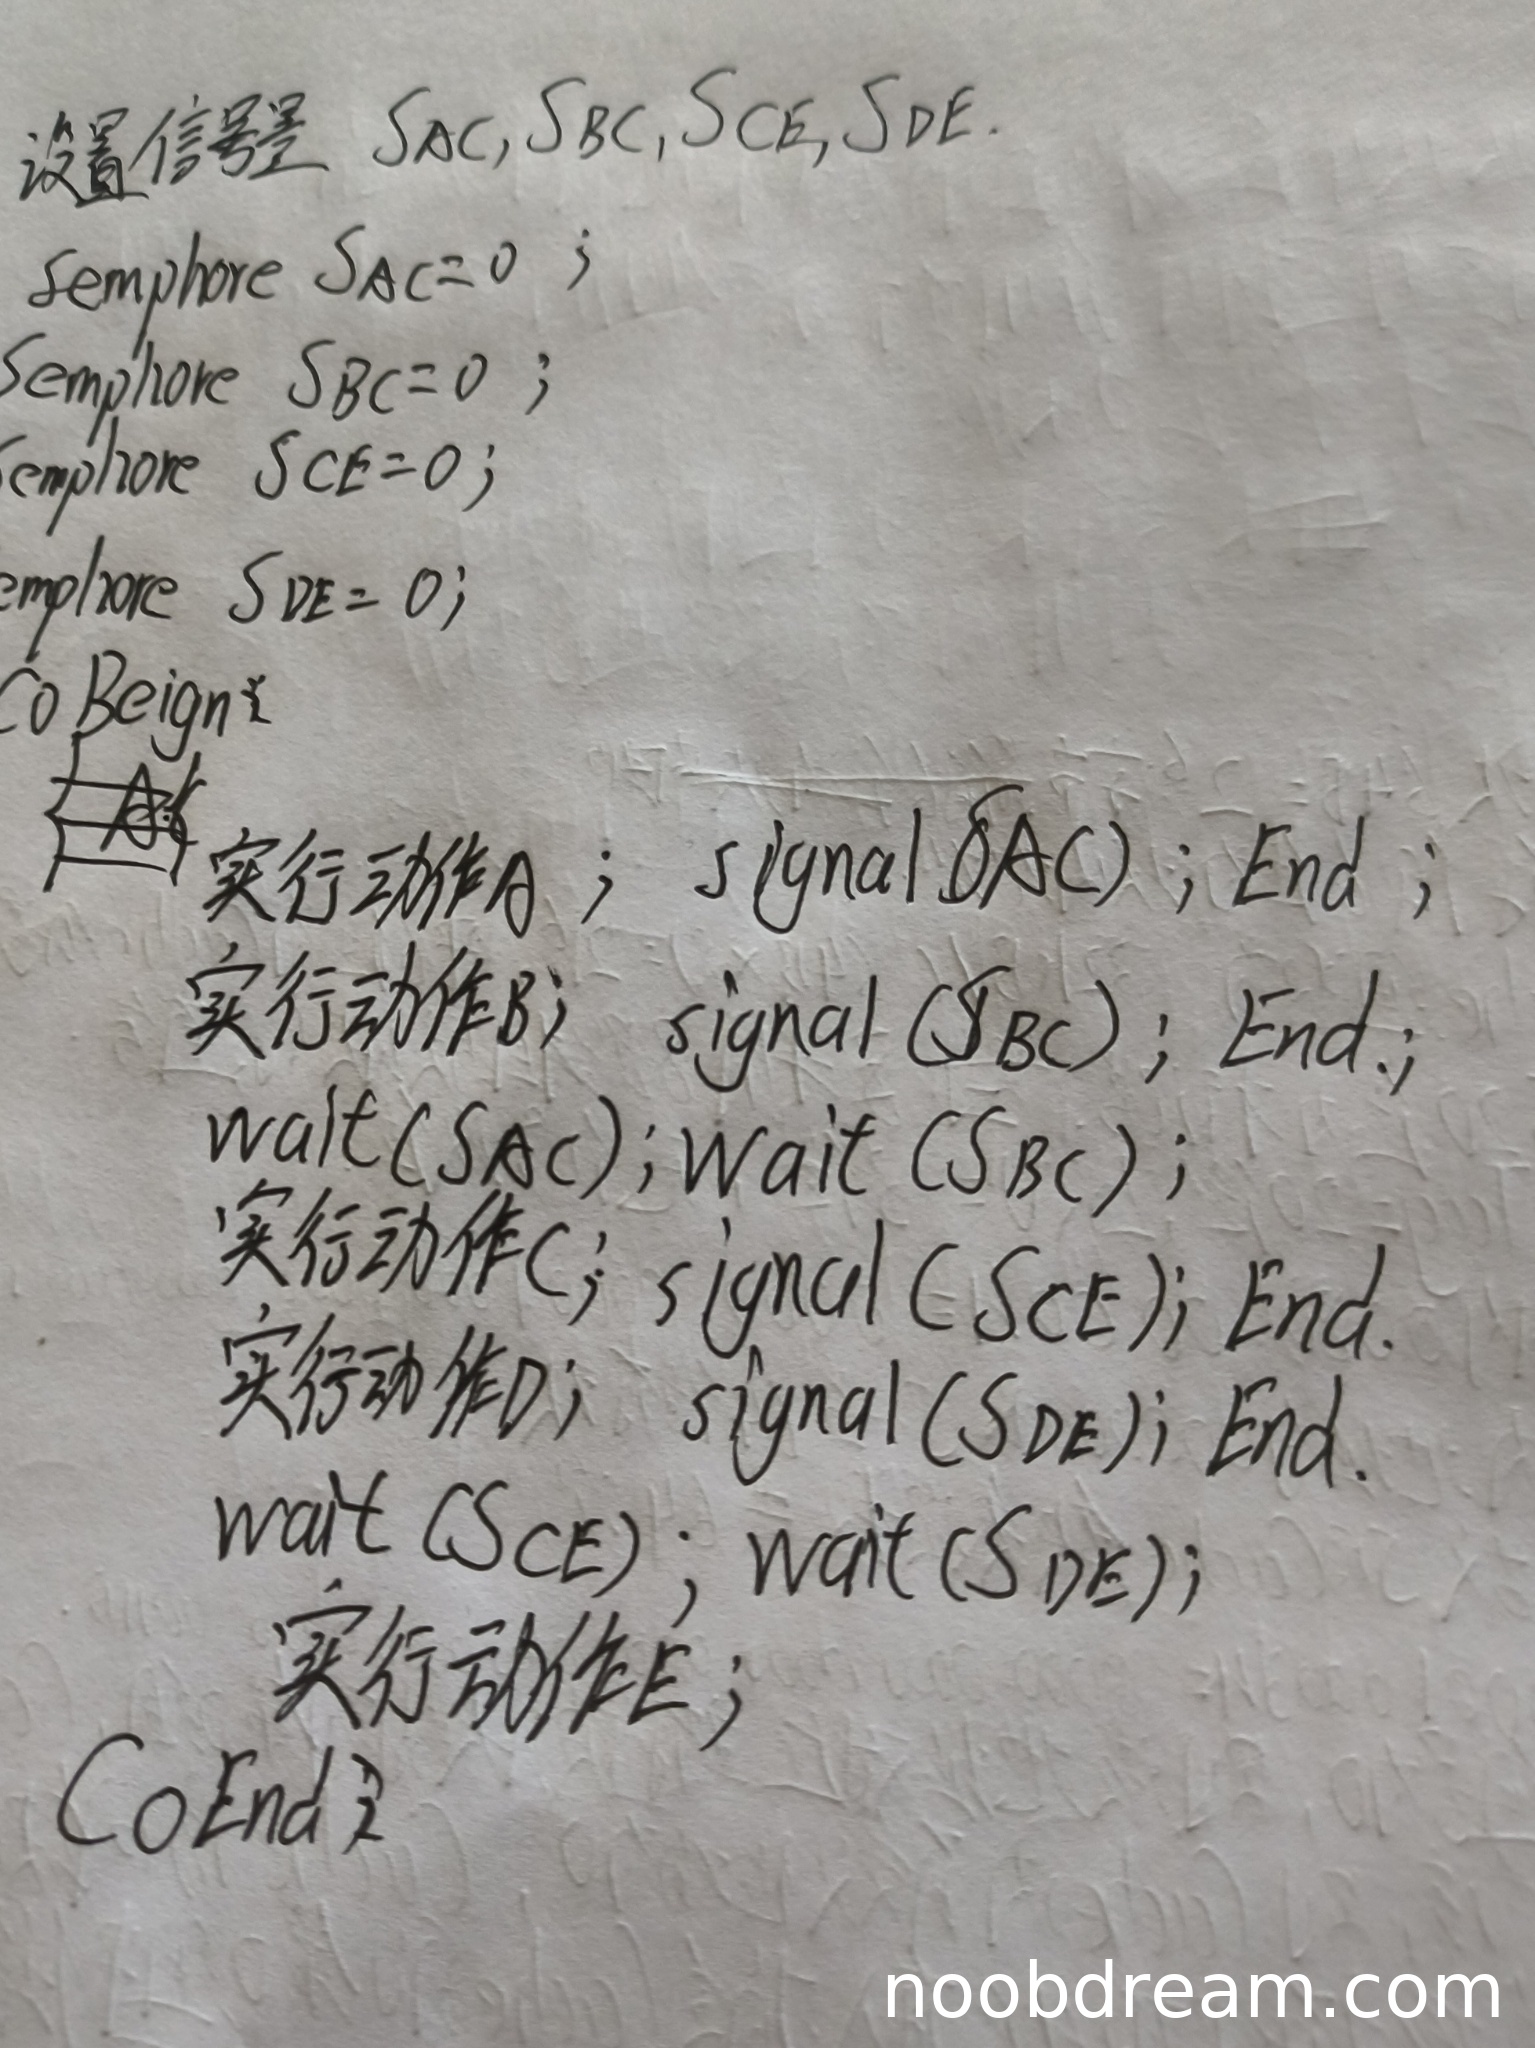 设置信号量 SAC, SBC, SCE, SDE.
Semphore SAC=0 ;
Semphore SBC=0 ;
Semphore SCE=0;
emphore SDE= 0;
Co Beign{
实行动作A ; signal(SAC) ; End ;
实行动作B; signal (SBC) ; End.;
wait(SAC); Wait (SBC) ;
实行动作C; signal (SCE); End.
实行动作D; signal (SDE); End.
wait (SCE) ; wait (SDE);
实行动作E ;
CoEnd }
noobdream.com